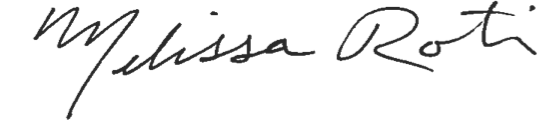 Melissa Roti